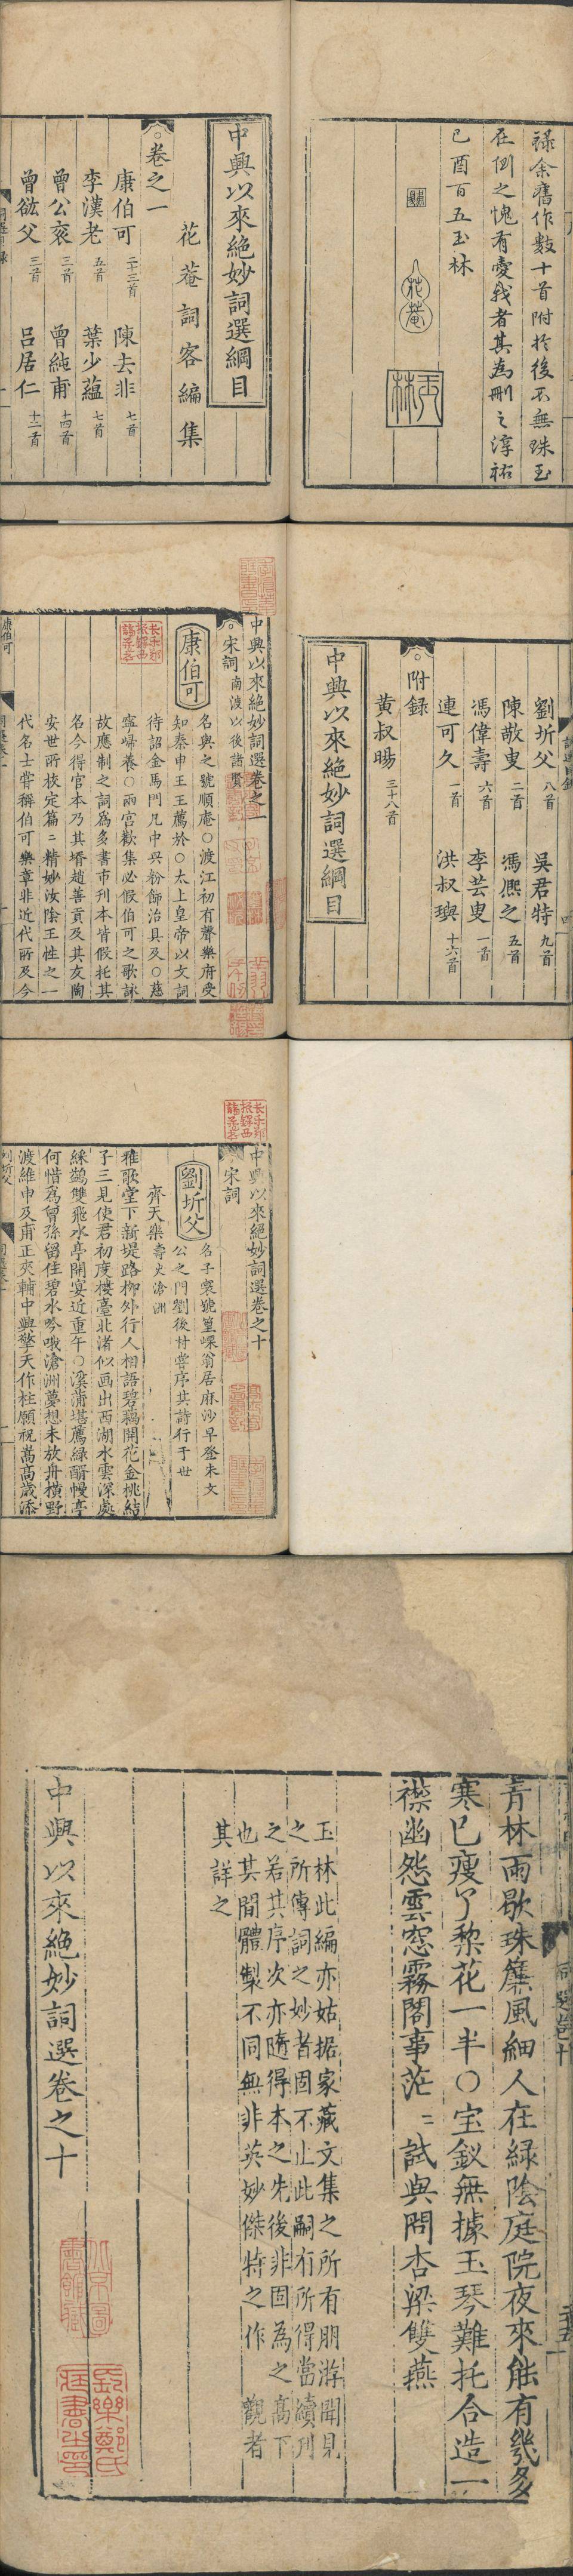 祿余舊作數十首附於後不無珠玉
在側之愧有愛我者其為刪之淳祐
己酉百五玉林
花菴
玉林
中興以來絕妙詞選綱目
花菴詞客編集
卷之一
康伯可 二十三首 陳去非 七首
李漢老 五首 葉少蘊 七首
曾公袞 三首 曾純甫 十四首
曾紘父 三首 呂居仁 十二首
劉圻父 八首 吳君特 九首
陳敬叟 二首 馮熙之 五首
馮偉壽 六首 李芸叟 一首
連可久 一首 洪叔璵 十六首
附錄
黃叔暘 三十八首
中興以來絕妙詞選綱目
中興以來絕妙詞選卷之一
宋詞 南渡以後諸賢
康伯可
名與之號順庵○渡江初有聲樂府受
知秦申王王薦於○太上皇帝以文詞
待詔金馬門凡中興粉飾治具及○慈
寧歸養○兩宮歡集必假伯可之歌詠
故應制之詞為多書市刊本皆假托其
名今得官本乃其壻趙善貢及其友陶
安世所校定篇〻精妙汝陰王性之一
代名士嘗稱伯可樂章非近代所及今
康伯可
中興以來絕妙詞選卷之十
宋詞
劉圻父
名子寰號篁𡻕翁居麻沙早登朱文
公之門劉後村嘗序其詩行于世
齊天樂 壽史滄洲
雅歌堂下新堤路柳外行人相語碧藕開花金桃結
子三見使君初度樓臺北渚似画出西湖水雲深處
綵鷁雙飛水亭開宴近重午○溪蒲堪薦綠醑幔亭
何惜為曾孫留住碧水吟哦滄洲夢想未放舟橫野
渡維申及甫正夾輔中興擎天作柱願祝嵩高歲添
劉圻父
青林雨歇珠簾風細人在綠陰庭院夜來能有幾多
寒已瘦了梨花一半○宝釵無據玉琴難托合造一
襟幽怨雲窓霧閣事茫〻試與問杏梁雙燕
玉林此編亦姑据家藏文集之所有朋游聞見
之所傳詞之妙者固不止此嗣有所得當續刊
之若其序次亦隨得本之先後非固為之高下
也其間體製不同無非英妙傑特之作 觀者
其詳之
中興以來絕妙詞選卷之十